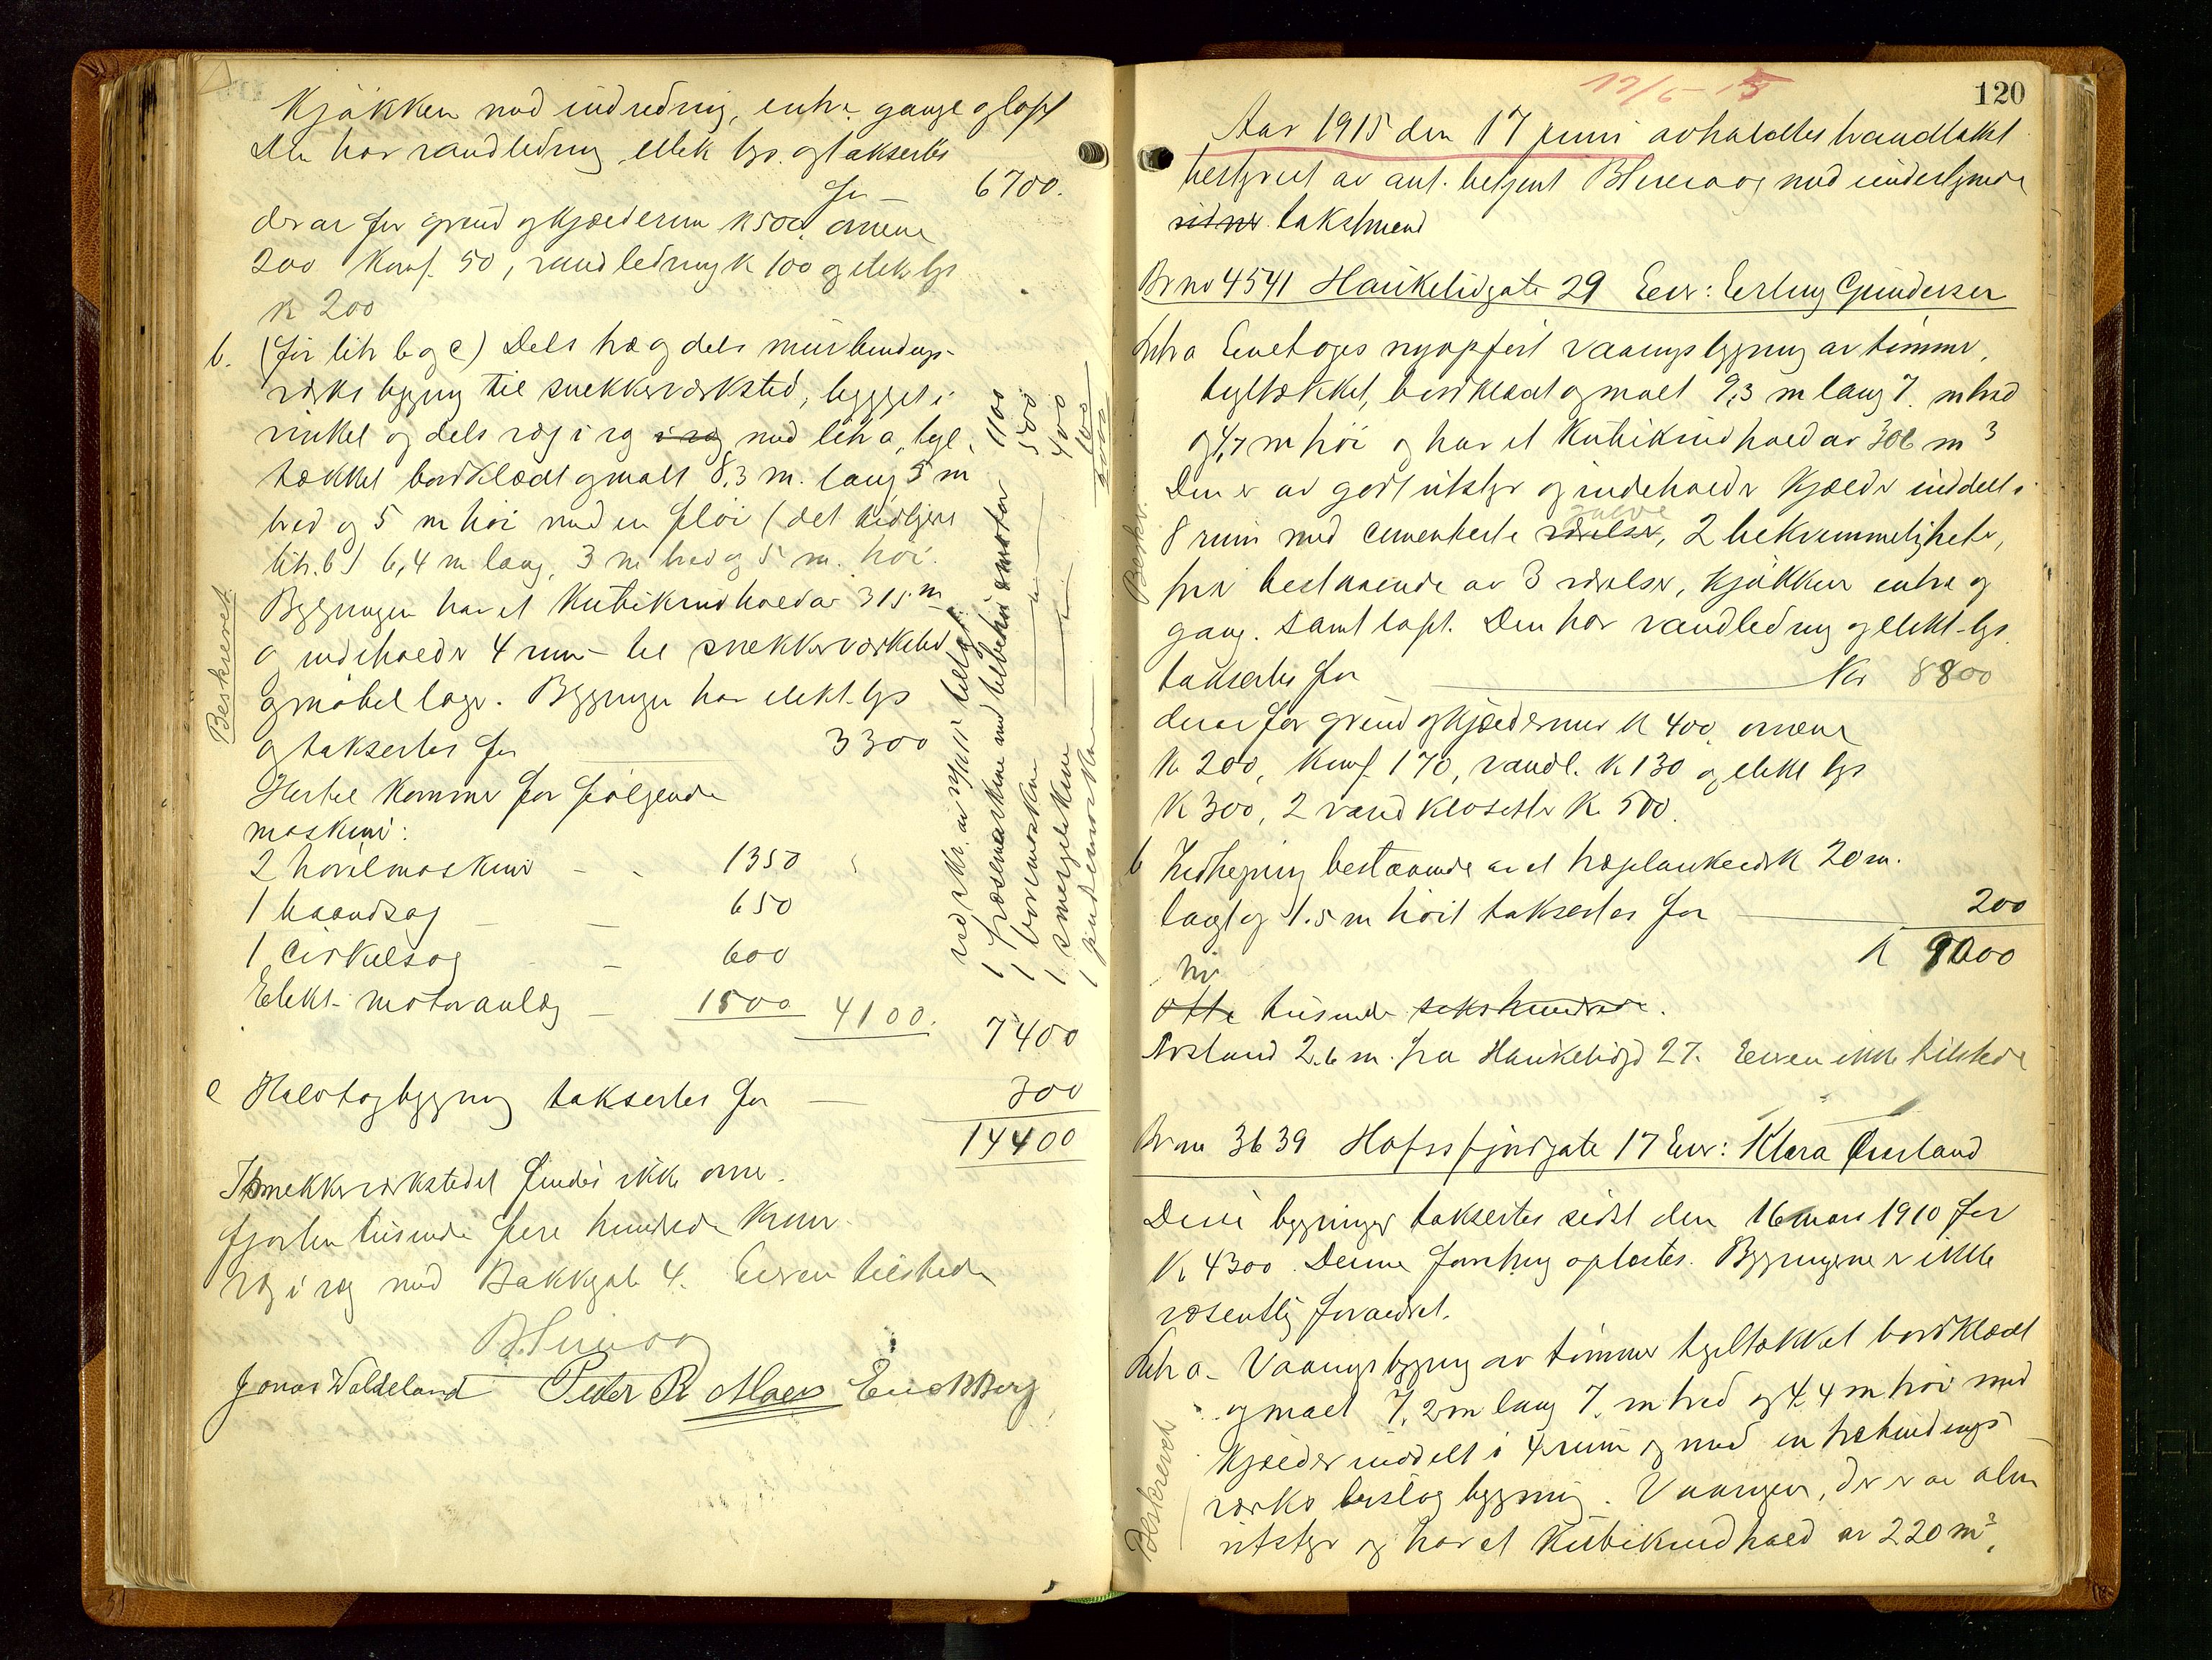 Kjøkken med indredning, entre, gange og loft
Den har vandledning elek lys. og takseres
for 6700.
derav for grund og kjælderum k 500, ovnene
200 komf. 50, vandledning k 100 og elek lys
k 200
b. (før litr b og c) Dels træ og dels murbindings-
verks bygning til snekkerverksted, bygget i
vinkel og dels væg i væg i væg med litr a, tegl-
tækket bordklædt og malt 8,3 m. lang 5 m
bred og 5 m høi med en fløi (det tidligere
litr. b) 6,4 m lang, 3 m bred og 5 m. høi.
Bygningen har et kubikindhold av 315 m
og indeholder 4 rum til snekkerverksted
og møbellager. Bygningen har elekt. lys
og takseres for 3300
Hertil kommer for følgende
maskiner:
2 høvelmaskiner - - 1350
1 baandsag - - 650
1 cirkelsag - - 600
Elekt. motoranlæg - 1500 4100.
7400
c Halvtagbygning takseres for — 300
14400
I snekkerverkstedet findes ikke ovne.
fjorten tusinde fire hundrede kroner.
Væg i væg med Bakkegate 4. Eieren tilstede
Jonas Waldeland Peder R Maen Erik Berg
Beskrevet
1 fræsemaskine med tilbehør og motor 1100
1 boremaskine — " — 500
1 smergelskive — " — 400
1 pudsemaskine
12/6-15
120
Aar 1915 den 17 juni avholdtes brandtakst
bestyret av ant. betjent med undertegnede
takstmænd
Br no 4541 Haukelidgate 29 Eier: Erling Gundersen
Litr a Enetages nyopført vaaningsbygning av tømmer,
tegltækket, bordklædt og malt 9,3 m lang 7. m bred
og 4,7 m høi og har et kubikindhold av 306 m3
Den er av godt utstyr og indeholder kjælder inddelt i
gulve
8 rum med cementerte værelser, 2 bekvemmeligheter,
hver bestaaende av 3 værelser, kjøkken entre og
gang. samt loft. Den har vandledning og elekt-lys.
takseres for — Kr 8800
derav for grund og kjældermur k 400, ovnene
k 200, komf. 170, vandl. k 130 og elekt lys
k 300, 2 vandklosetter k 500.
b Indhegning bestaaende av et træplankeverk 20 m.
langt og 1.5 m høit takseres for — 200
k 9000
ni
otte tusinde sekshundrede.
Avstand 2.6 m. fra Haukelidgd 27. Eieren ikke tilstede
Br no 3639 Hafrsfjordgate 17 Eier: Klara Øverland
Disse bygninger takseres sidst den 16 mars 1910 for
k 4300. Denne forretning oplæstes. Bygningerne er ikke
væsentlig forandret.
Litr a- Vaaningsbygning av tømmer tegltækket bordklædt
og malt 7,2 m lang 7. m bred og 4,4 m høi med
kjælder inddelt i 4 rum og med en træbindings-
verks bislag bygning. Vaaningen, der er av alm
utstyr og har et kubikindhold av 220 m3,
Beskrev.
Beskrevet